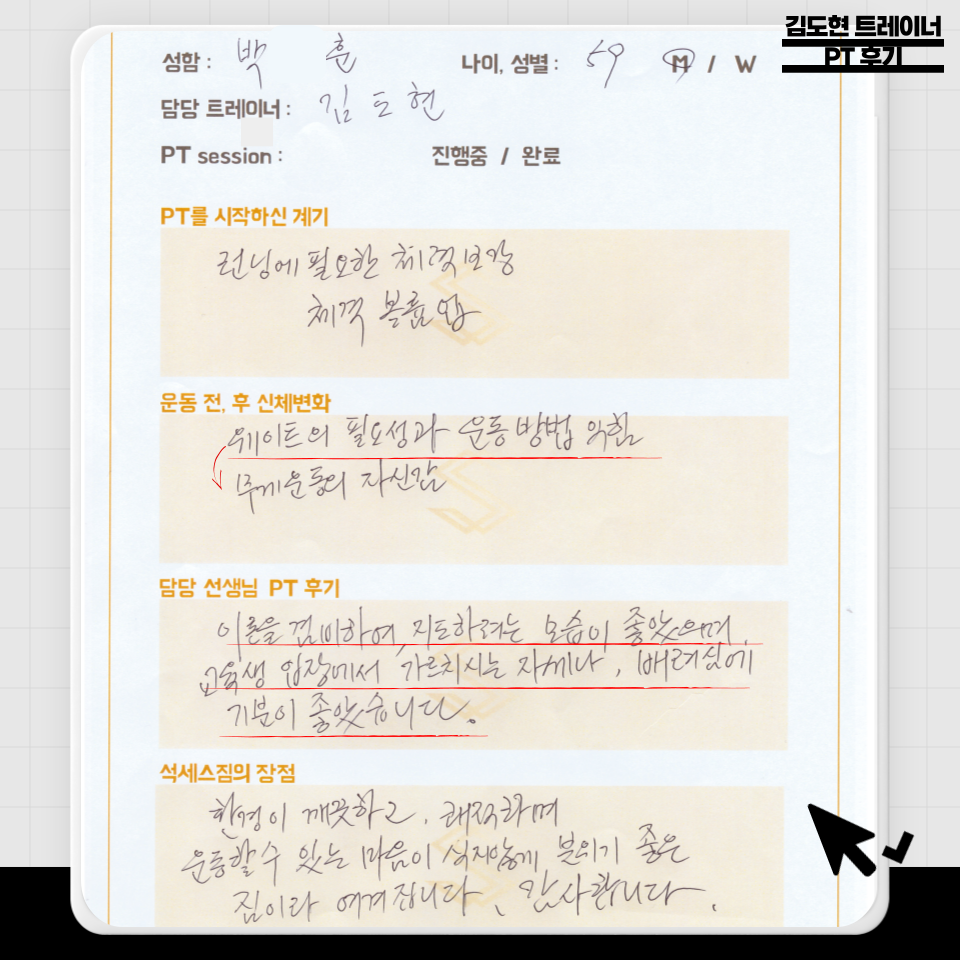 김도현 트레이너
PT 후기
성함 : 백 훈 나이, 성별 : 59 M / W
담당 트레이너 : 김 도 현
PT session : 진행중 / 완료
PT를 시작하신 계기
런닝에 필요한 체력보강
체격 볼륨업
운동 전, 후 신체변화
웨이트의 필요성과 운동방법 익힘
무게운동의 자신감
담당 선생님 PT 후기
이론을 겸비하여 지도하려는 모습이 좋았으며,
교육생 입장에서 가르치시는 자세나, 배려심에
기분이 좋았습니다.
석세스짐의 장점
환경이 깨끗하고, 쾌적하며
운동할수 있는 마음이 식지않게 분위기 좋은
짐이라 여겨집니다, 감사합니다.